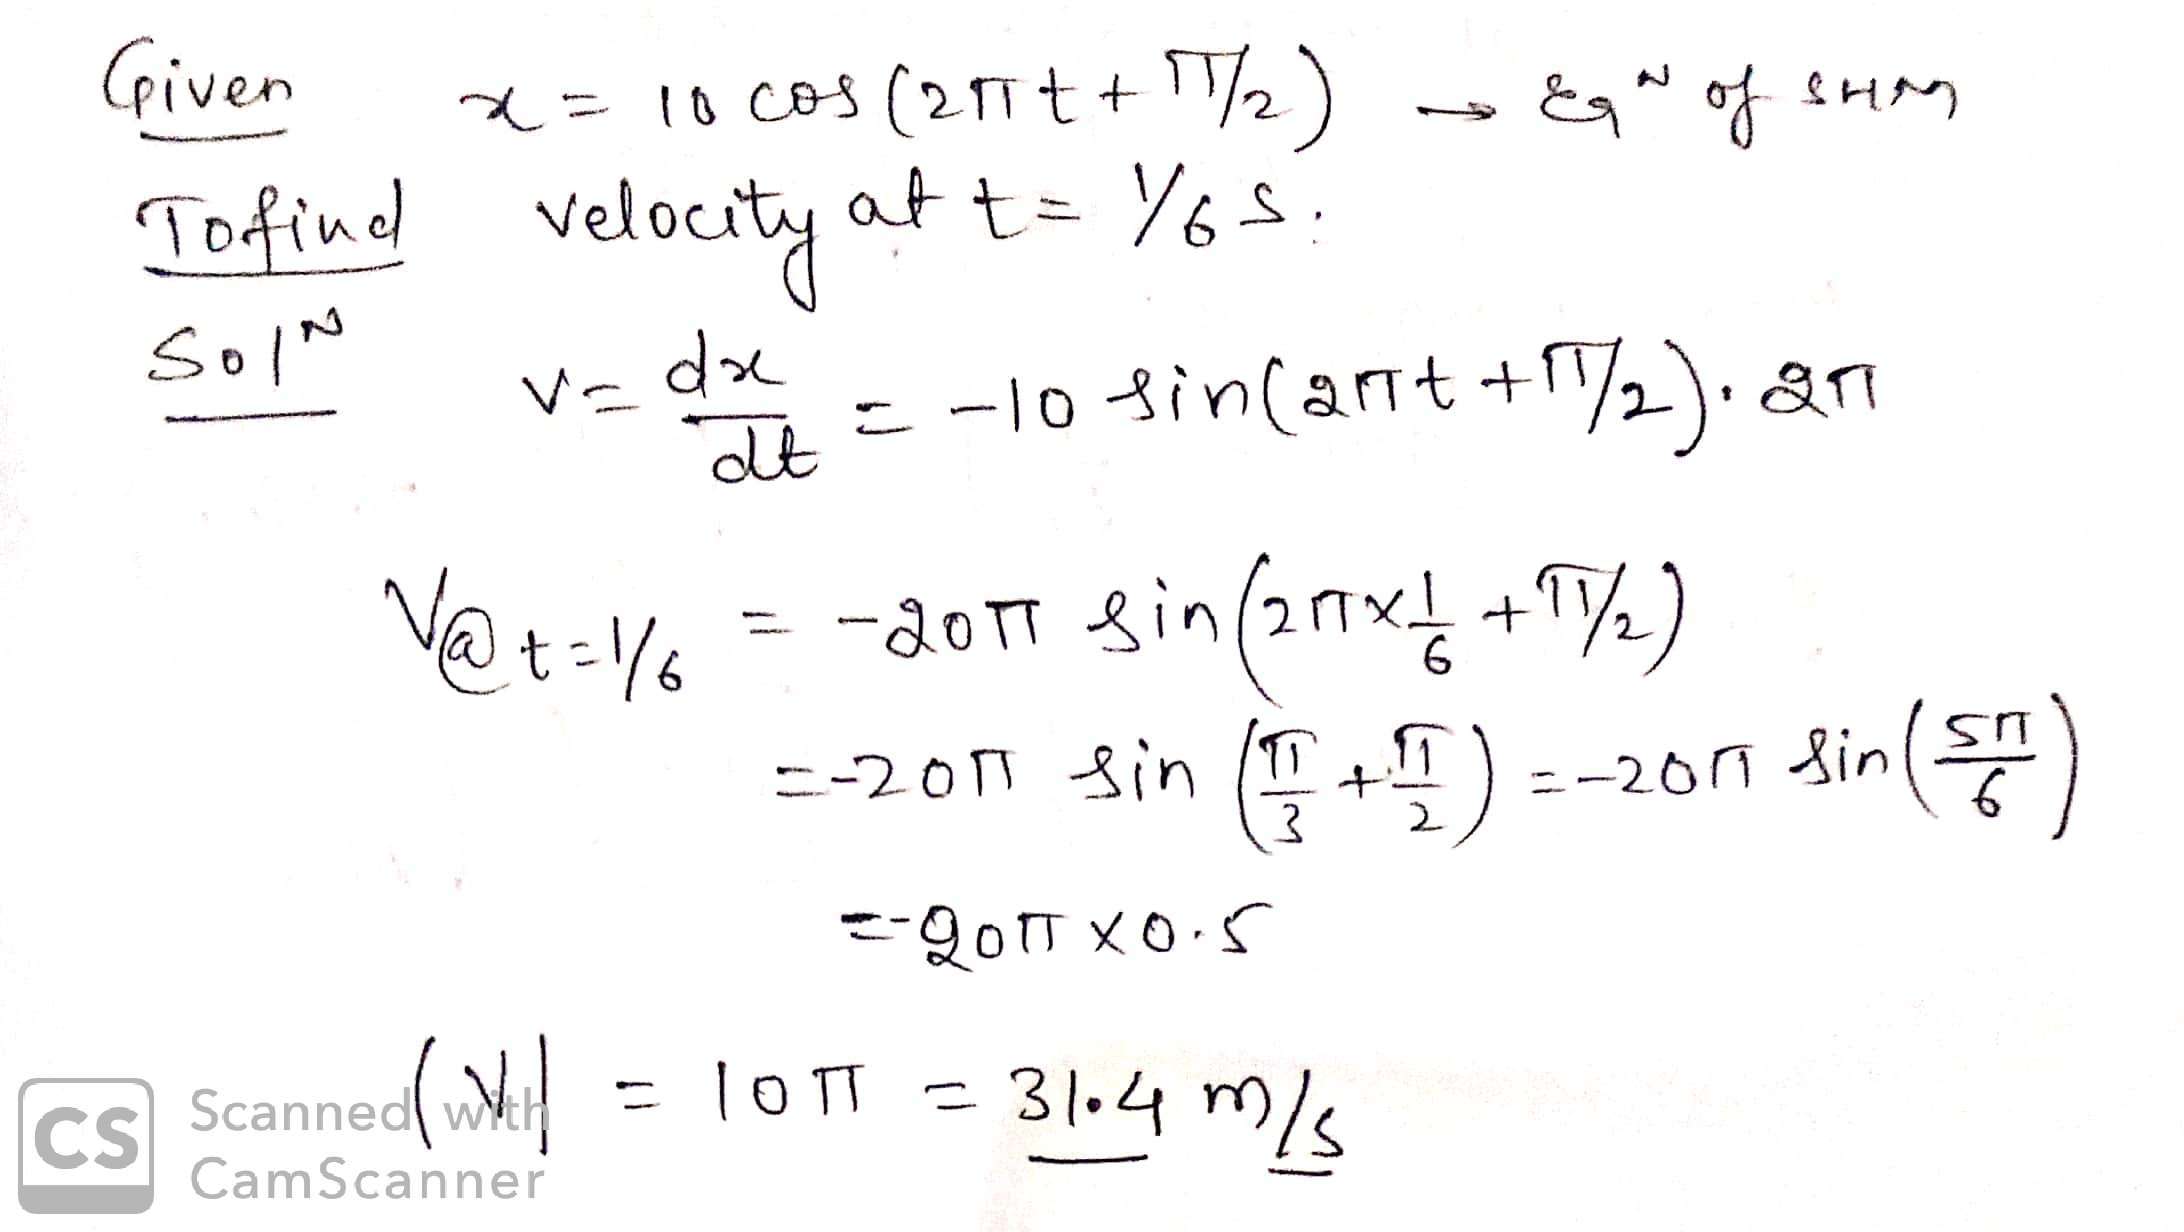 Given x = 10 cos (2πt + π/2) → Eqᴺ of SHM
To find velocity at t = 1/6 s.
Solᴺ v = dx/dt = -10 sin(2πt + π/2). 2π
V@ t=1/6 = -20π sin(2π×1/6 + π/2)
=-20π sin (π/3 + π/2) = -20π sin(5π/6)
=-20π × 0.5
(V| = 10π = 31.4 m/s
CS Scanned with
CamScanner